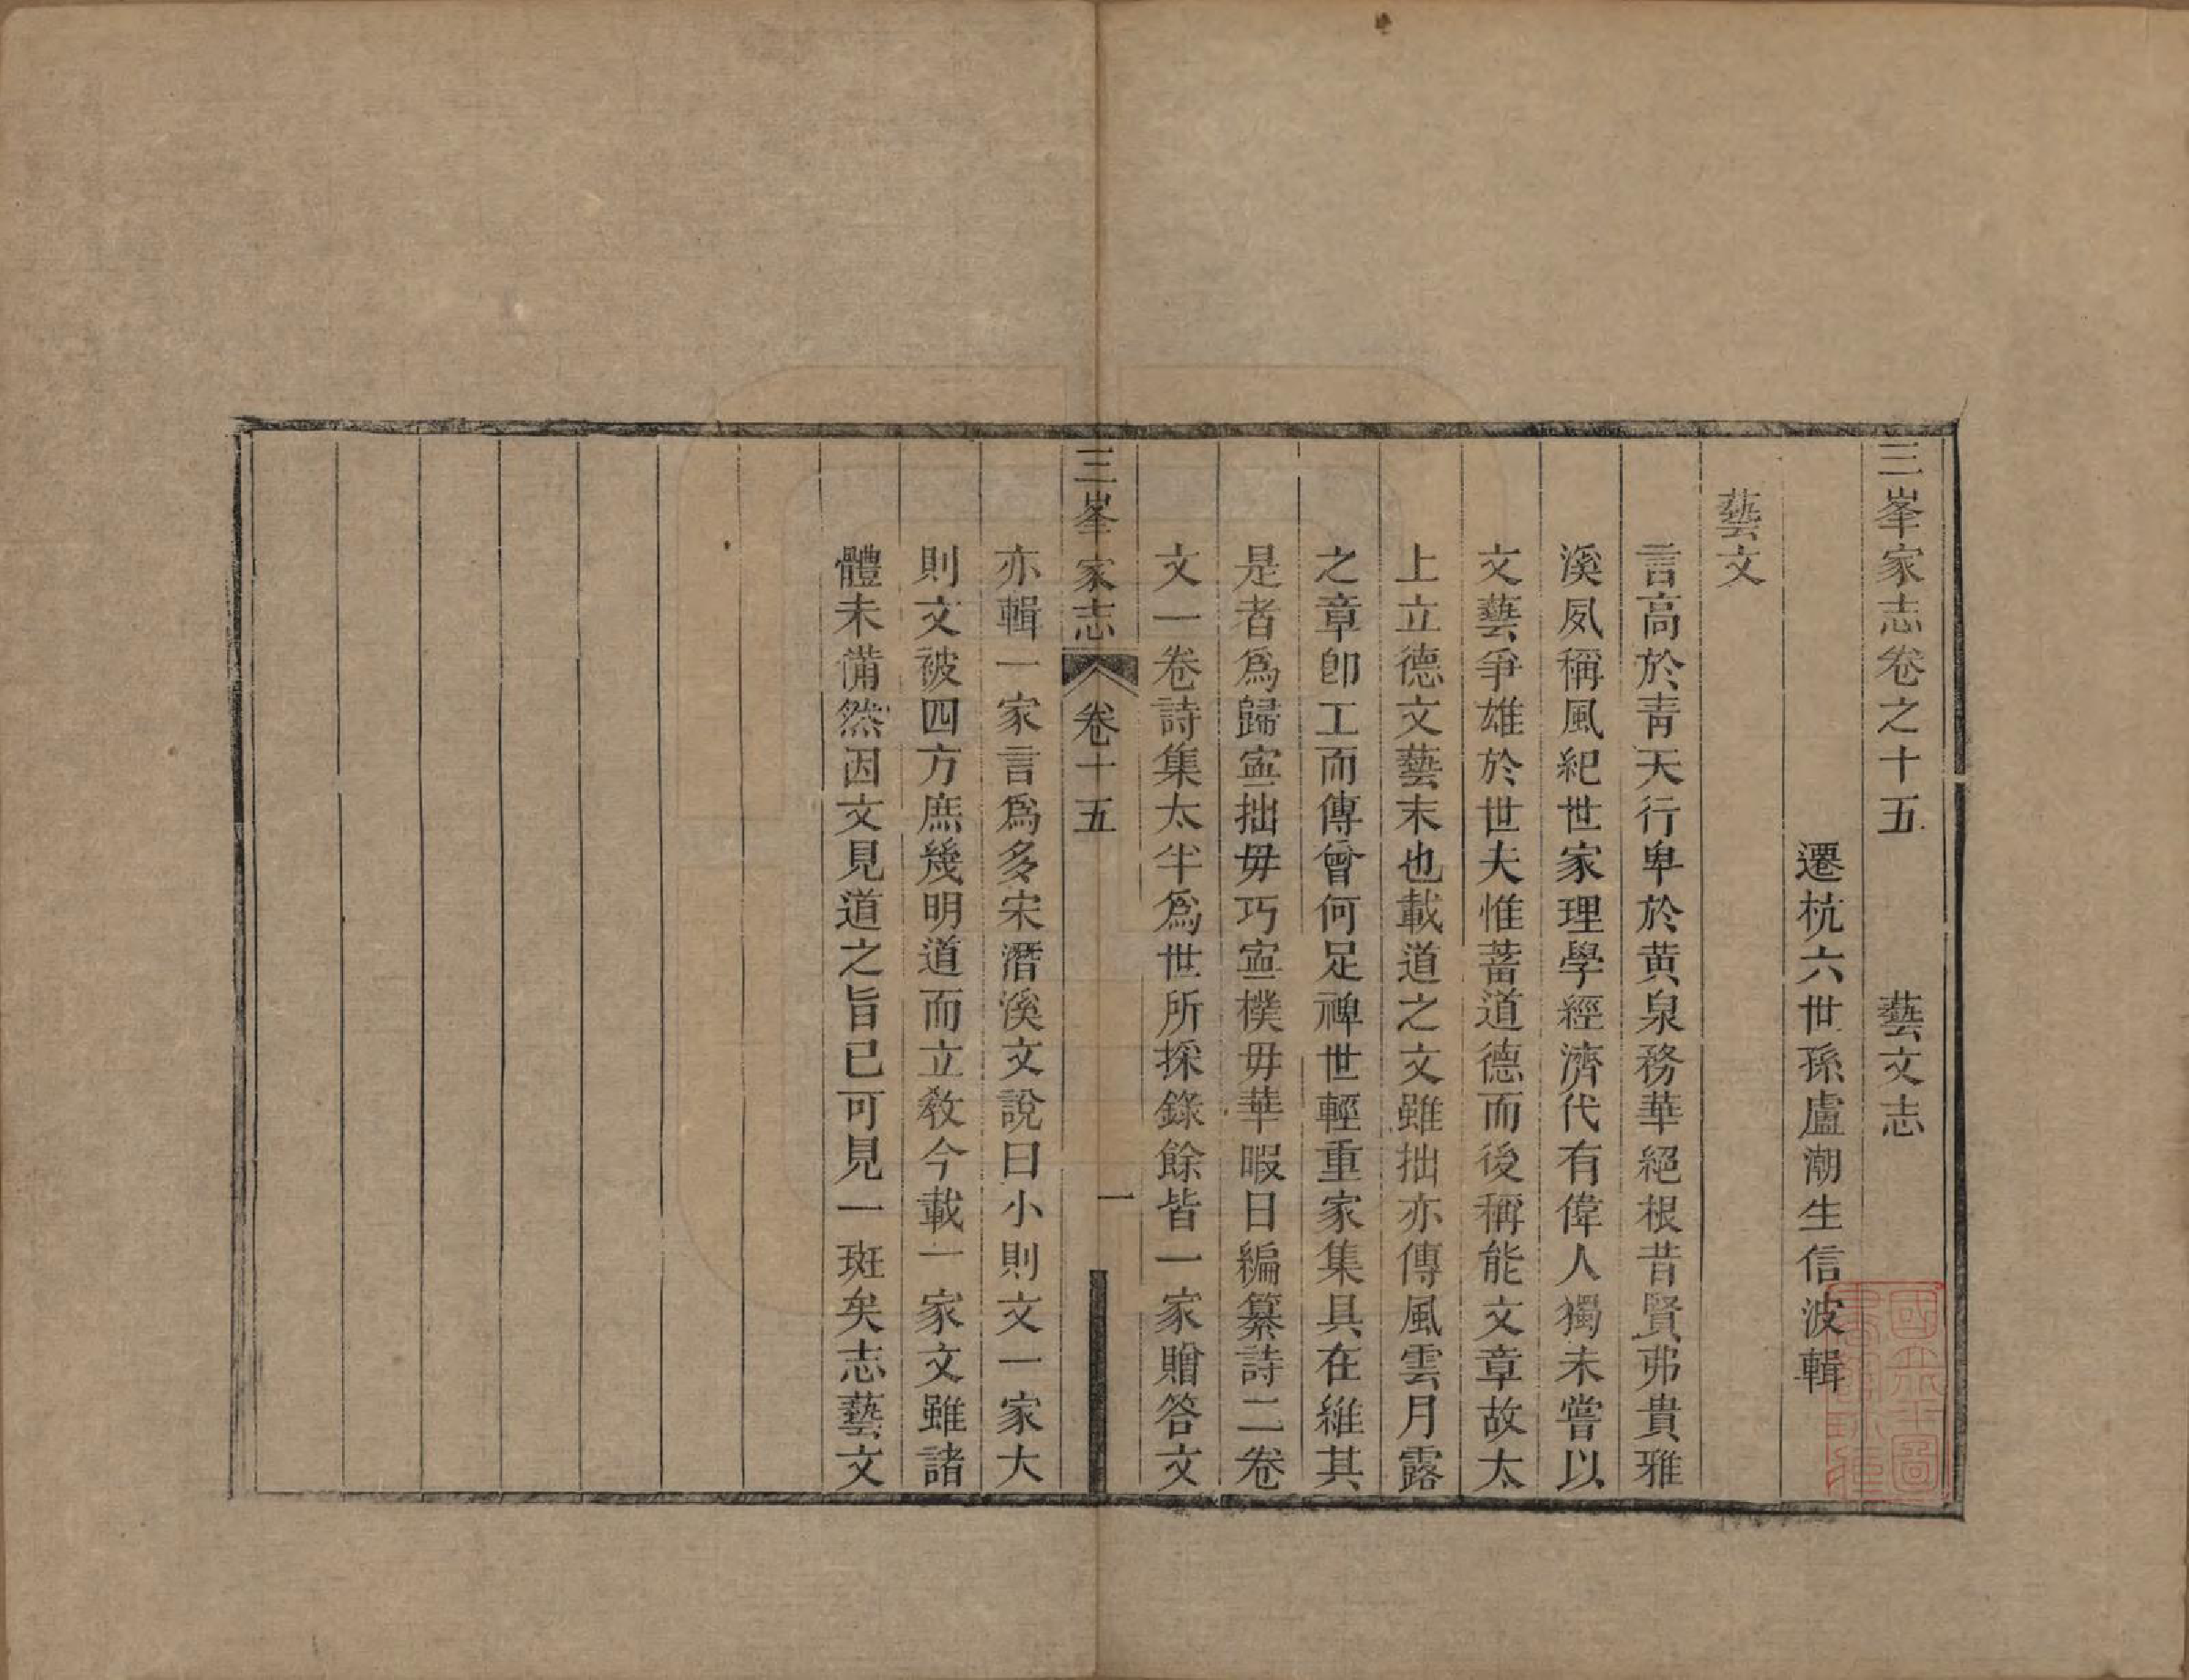 三峯家志卷之十五　藝文志
遷杭六世孫盧潮生信波輯
藝文
言高於靑天行卑於黄泉務華絕根昔賢弗貴雅
溪夙稱風紀世家理學經濟代有偉人獨未嘗以
文藝爭雄於世夫惟蓄道德而後稱能文章故太
上立德文藝末也載道之文雖拙亦傳風雲月露
之章卽工而傳曾何足禆世輕重家集具在維其
是者爲歸寍拙毋巧寍樸毋華暇日編纂詩二卷
文一卷詩集太半爲世所採錄餘皆一家贈答文
三峯家志　卷十五　一
亦輯一家言爲多宋潛溪文說曰小則文一家大
則文被四方庶幾明道而立敎今載一家文雖諸
體未備然因文見道之旨已可見一斑矣志藝文